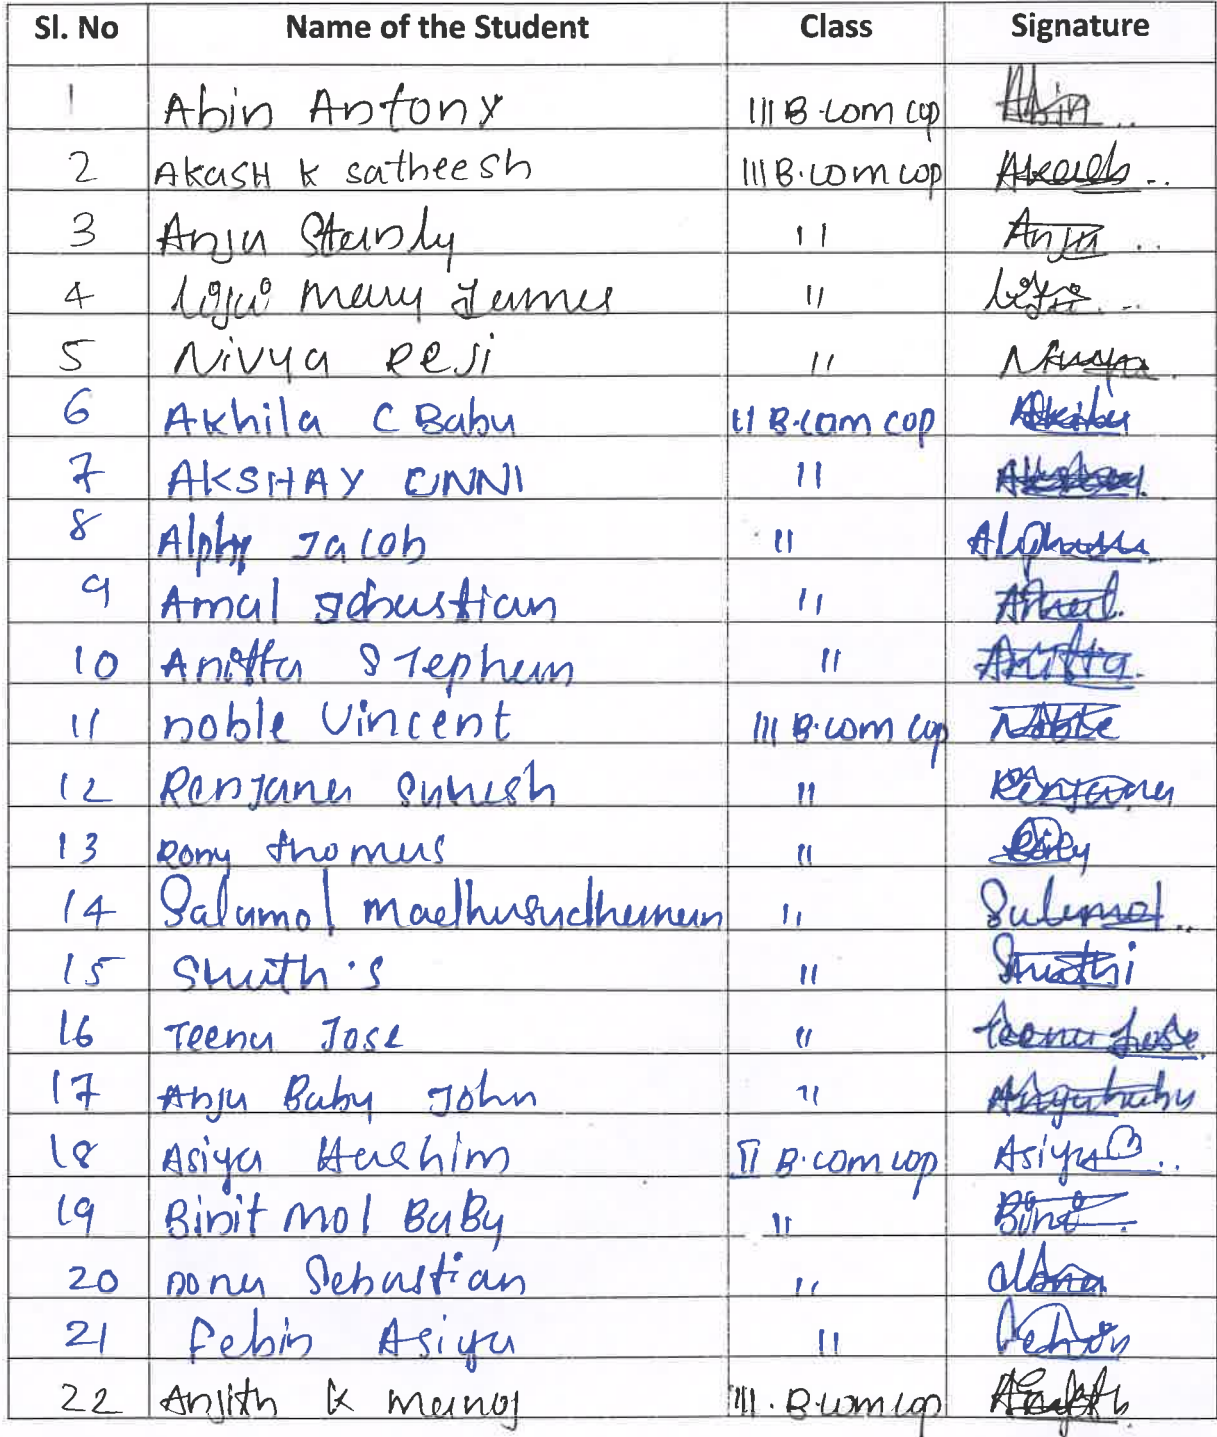 Sl. No Name of the Student Class Signature
1 Abin Antony III B.com cop Abin
2 AKASH K Satheesh III B.com cop Akash
3 Anju Stanly " Anju
4 Liju Mary James "
5 Nivya Reji " Nivya
6 Akhila C Babu II B.com cop Akhila
7 AKSHAY UNNI " Akshay
8 Alphy Jacob "
9 Amal Sebustian " Amal
10 Anitta Stephen " Anitta
11 noble Vincent III B.com cop Noble
12 Renjana Suresh " Renjana
13 Rony Thomas " Rony
14 Salumol Madhusudhanan " Salumol
15 Sruthi S " Sruthi
16 Teenu Jose " Teenu Jose
17 Anju Baby John " Anjubaby
18 Asiya Hashim II B.com cop Asiya
19 Binit Mol BaBy " Bini
20 Dona Sebastian " dona
21 Febin Asiya " Febin
22 Anjith K Manoj III . B.com cop